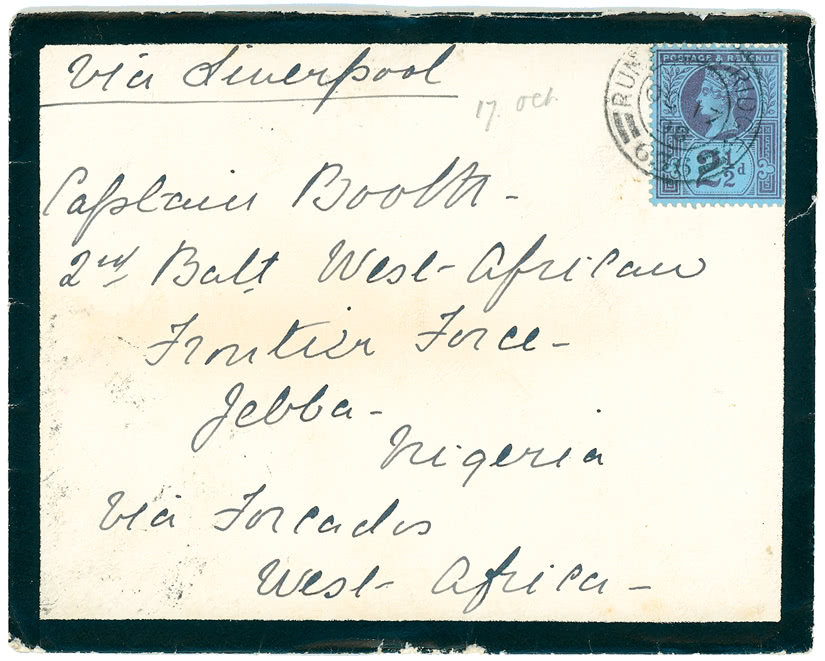 Via Liverpool
17. Oct
POSTAGE & REVENUE
2½d
Captain Booth -
2nd Batt West African
Frontier Force -
Jebba -
Nigeria
Via Forcados
West Africa -